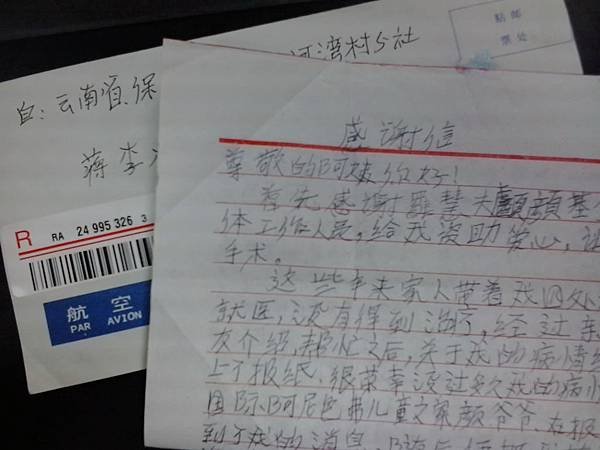 贴邮
票处
河湾村5社
自:云南省保
蒋李
R RA 24 995 326 3
航空
PAR AVION
感谢信
尊敬的阿姨你好!
首先感谢罗慧夫颅颜基
体工作人员,给我资助爱心,让
手术。
这些年来家人带着我四处
就医,没有得到治疗,经过亲
友介绍,帮忙之后,关于我的病情
上了报纸、很荣幸没过多久我的病
国际阿尼色弗儿童之家颜爷爷、在报
到了我的消息